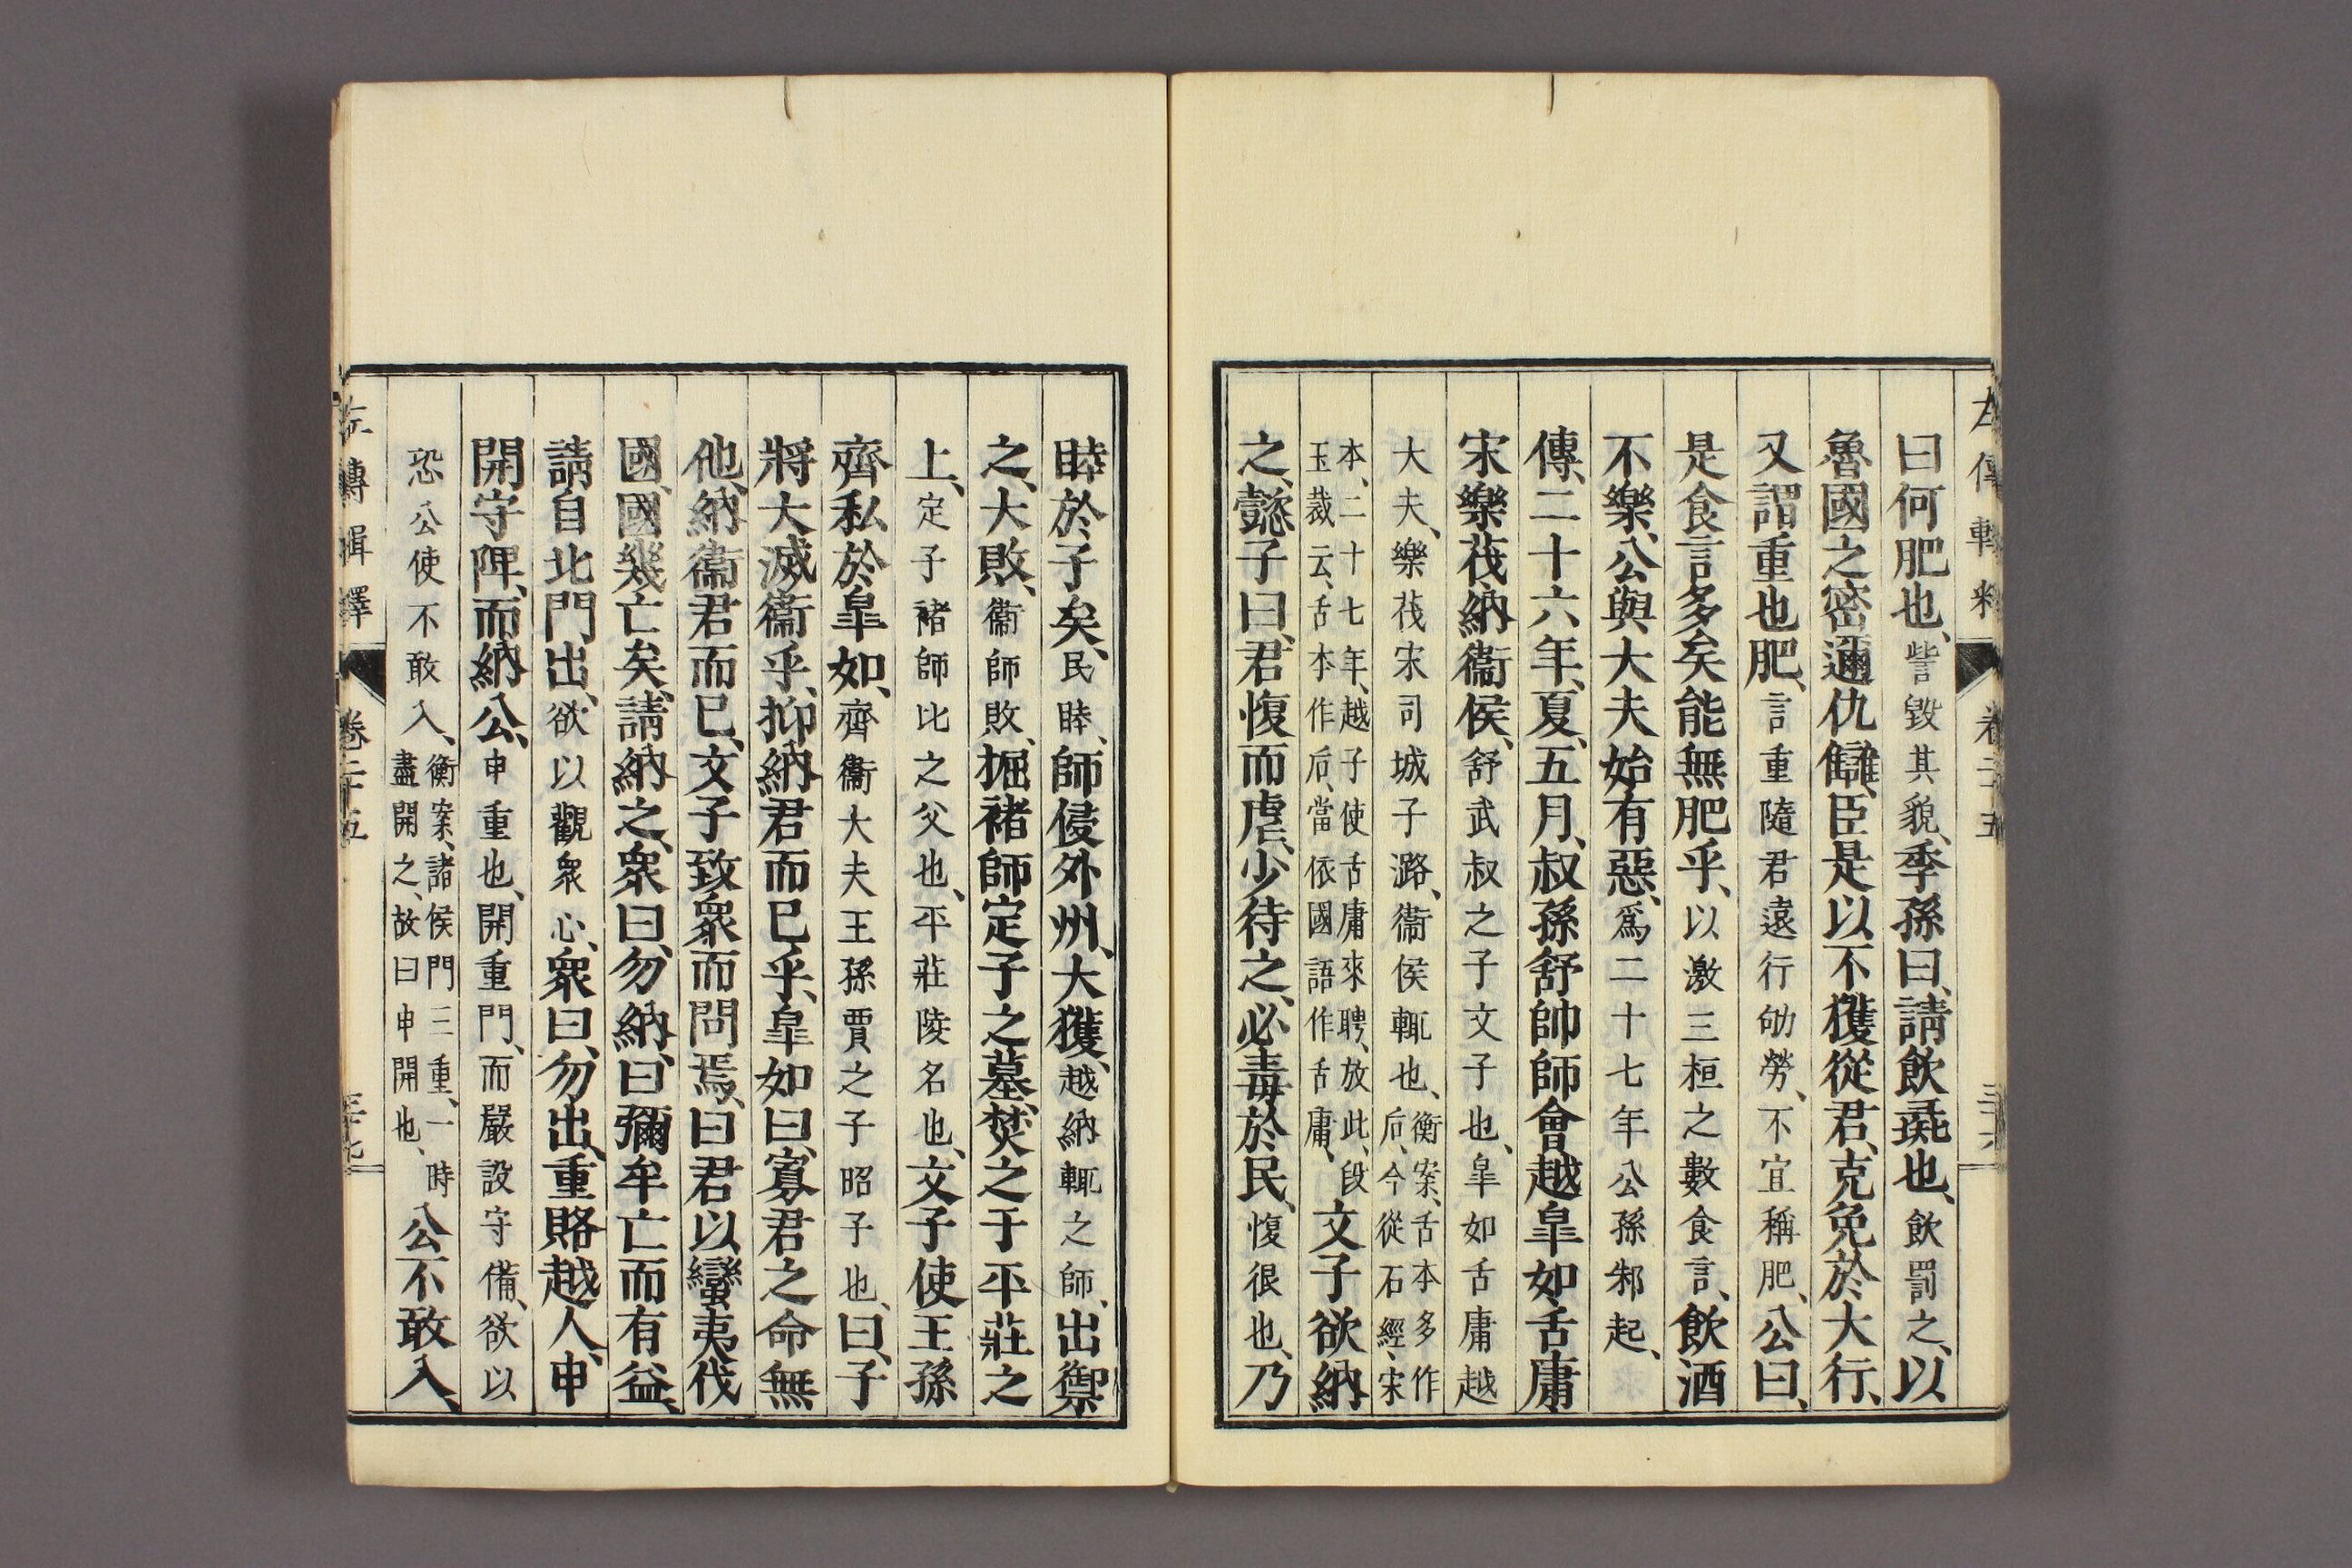 左傳輯釋 卷二十五 三十六
曰何肥也、訾毀其貌、季孫曰、請飲彘也、飲罰之、以
魯國之密邇仇讎、臣是以不獲從君、克免於大行、
又謂重也肥、言重隨君遠行劬勞、不宜稱肥、公曰、
是食言多矣能無肥乎、以激三桓之數食言、飲酒
不樂、公與大夫始有惡、爲二十七年公孫邾起、
傳、二十六年、夏、五月、叔孫舒帥師會越皐如舌庸
宋樂茷納衞侯、舒武叔之子文子也、皐如舌庸越
大夫、樂茷宋司城子潞、衞侯輒也、衡案、舌本多作
后、今從石經、宋
本、二十七年、越子使舌庸來聘、放此、段
玉裁云、舌本作后、當依國語作舌庸、文子欲納
之、懿子曰、君愎而虐、少待之、必毒於民、愎很也、乃
睦於子矣、民睦、師侵外州、大獲、越納輒之師、出禦
之、大敗、衞師敗、掘褚師定子之墓、焚之于平莊之
上、定子褚師比之父也、平莊陵名也、文子使王孫
齊私於皐如、齊衞大夫王孫賈之子昭子也、曰、子
將大滅衞乎、抑納君而已乎、皐如曰、寡君之命無
他、納衞君而已、文子致衆而問焉、曰君以蠻夷伐
國、國幾亡矣、請納之、衆曰、勿納、曰彌牟亡而有益、
請自北門出、欲以觀衆心、衆曰、勿出、重賂越人、申
開守陴、而納公、申重也、開重門、而嚴設守備、欲以
恐公使不敢入、衡案、諸侯門三重、一時
盡開之、故曰申開也、公不敢入、
左傳輯釋 卷二十五 三十七